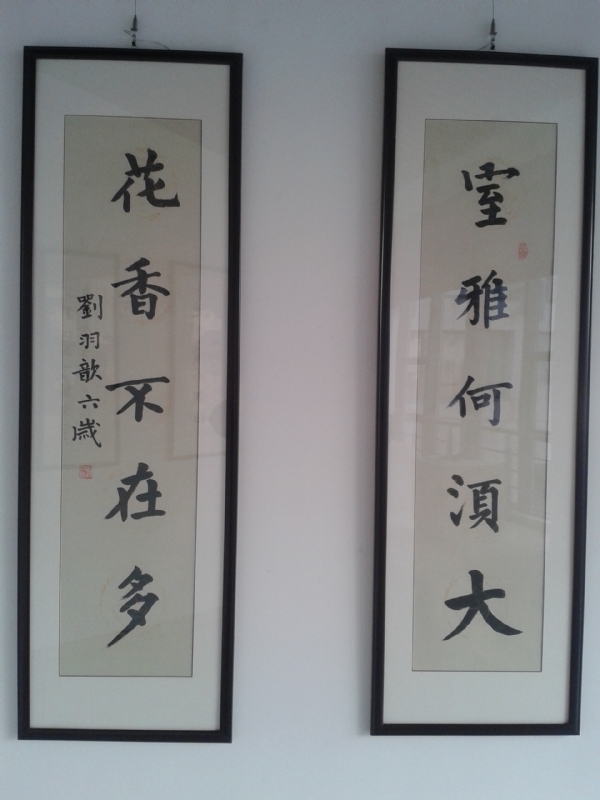 室雅何須大
花香不在多
劉羽歆六歲